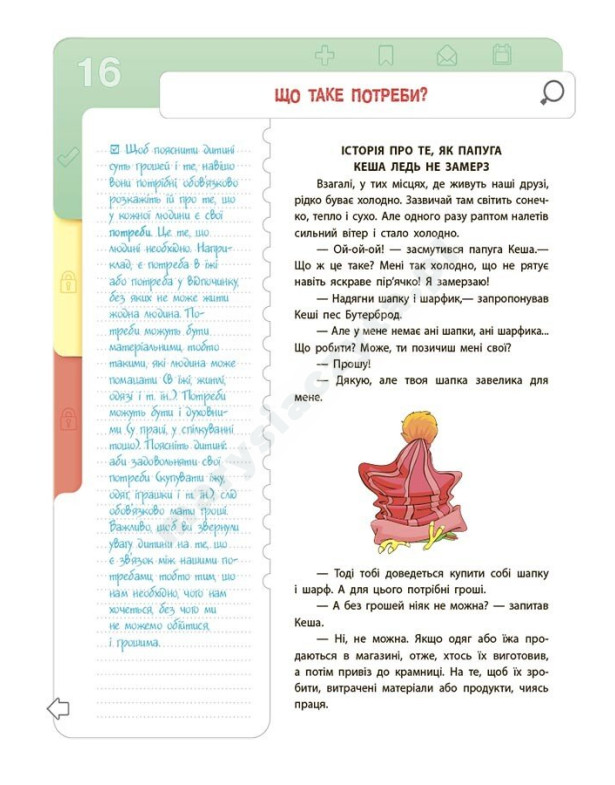 16
ЩО ТАКЕ ПОТРЕБИ?
Щоб пояснити дитині
суть грошей і те, навіщо
вони потрібні, обов'язково
розкажіть їй про те, що
у кожної людини є свої
потреби. Це те, що
людині необхідно. Напри-
клад, є потреба в їжі
або потреба у відпочинку,
без яких не може жити
жодна людина. По-
треби можуть бути
матеріальними, тобто
такими, які людина може
помацати (в їжі, житлі,
одязі і т. ін.). Потреби
можуть бути і духовни-
ми (у праці, у спілкуванні
тощо). Поясніть дитині:
аби задовольняти свої
потреби (купувати їжу,
одяг, іграшки і т. ін.), слід
обов'язково мати гроші.
Важливо, щоб ви звернули
увагу дитини на те, що
є зв'язок між нашими по-
требами, тобто тим, що
нам необхідно, чого нам
хочеться, без чого ми
не можемо обійтися,
і грошима.
ІСТОРІЯ ПРО ТЕ, ЯК ПАПУГА
КЕША ЛЕДЬ НЕ ЗАМЕРЗ
Взагалі, у тих місцях, де живуть наші друзі,
рідко буває холодно. Зазвичай там світить сонеч-
ко, тепло і сухо. Але одного разу раптом налетів
сильний вітер і стало холодно.
— Ой-ой-ой! — засмутився папуга Кеша.—
Що ж це таке? Мені так холодно, що не рятує
навіть яскраве пір'ячко! Я замерзаю!
— Надягни шапку і шарфик,— запропонував
Кеші пес Бутерброд.
— Але у мене немає ані шапки, ані шарфика...
Що робити? Може, ти позичиш мені свої?
— Прошу!
— Дякую, але твоя шапка завелика для
мене.
— Тоді тобі доведеться купити собі шапку
і шарф. А для цього потрібні гроші.
— А без грошей ніяк не можна? — запитав
Кеша.
— Ні, не можна. Якщо одяг або їжа про-
даються в магазині, отже, хтось їх виготовив,
а потім привіз до крамниці. На те, щоб їх зро-
бити, витрачені матеріали або продукти, чиясь
праця.